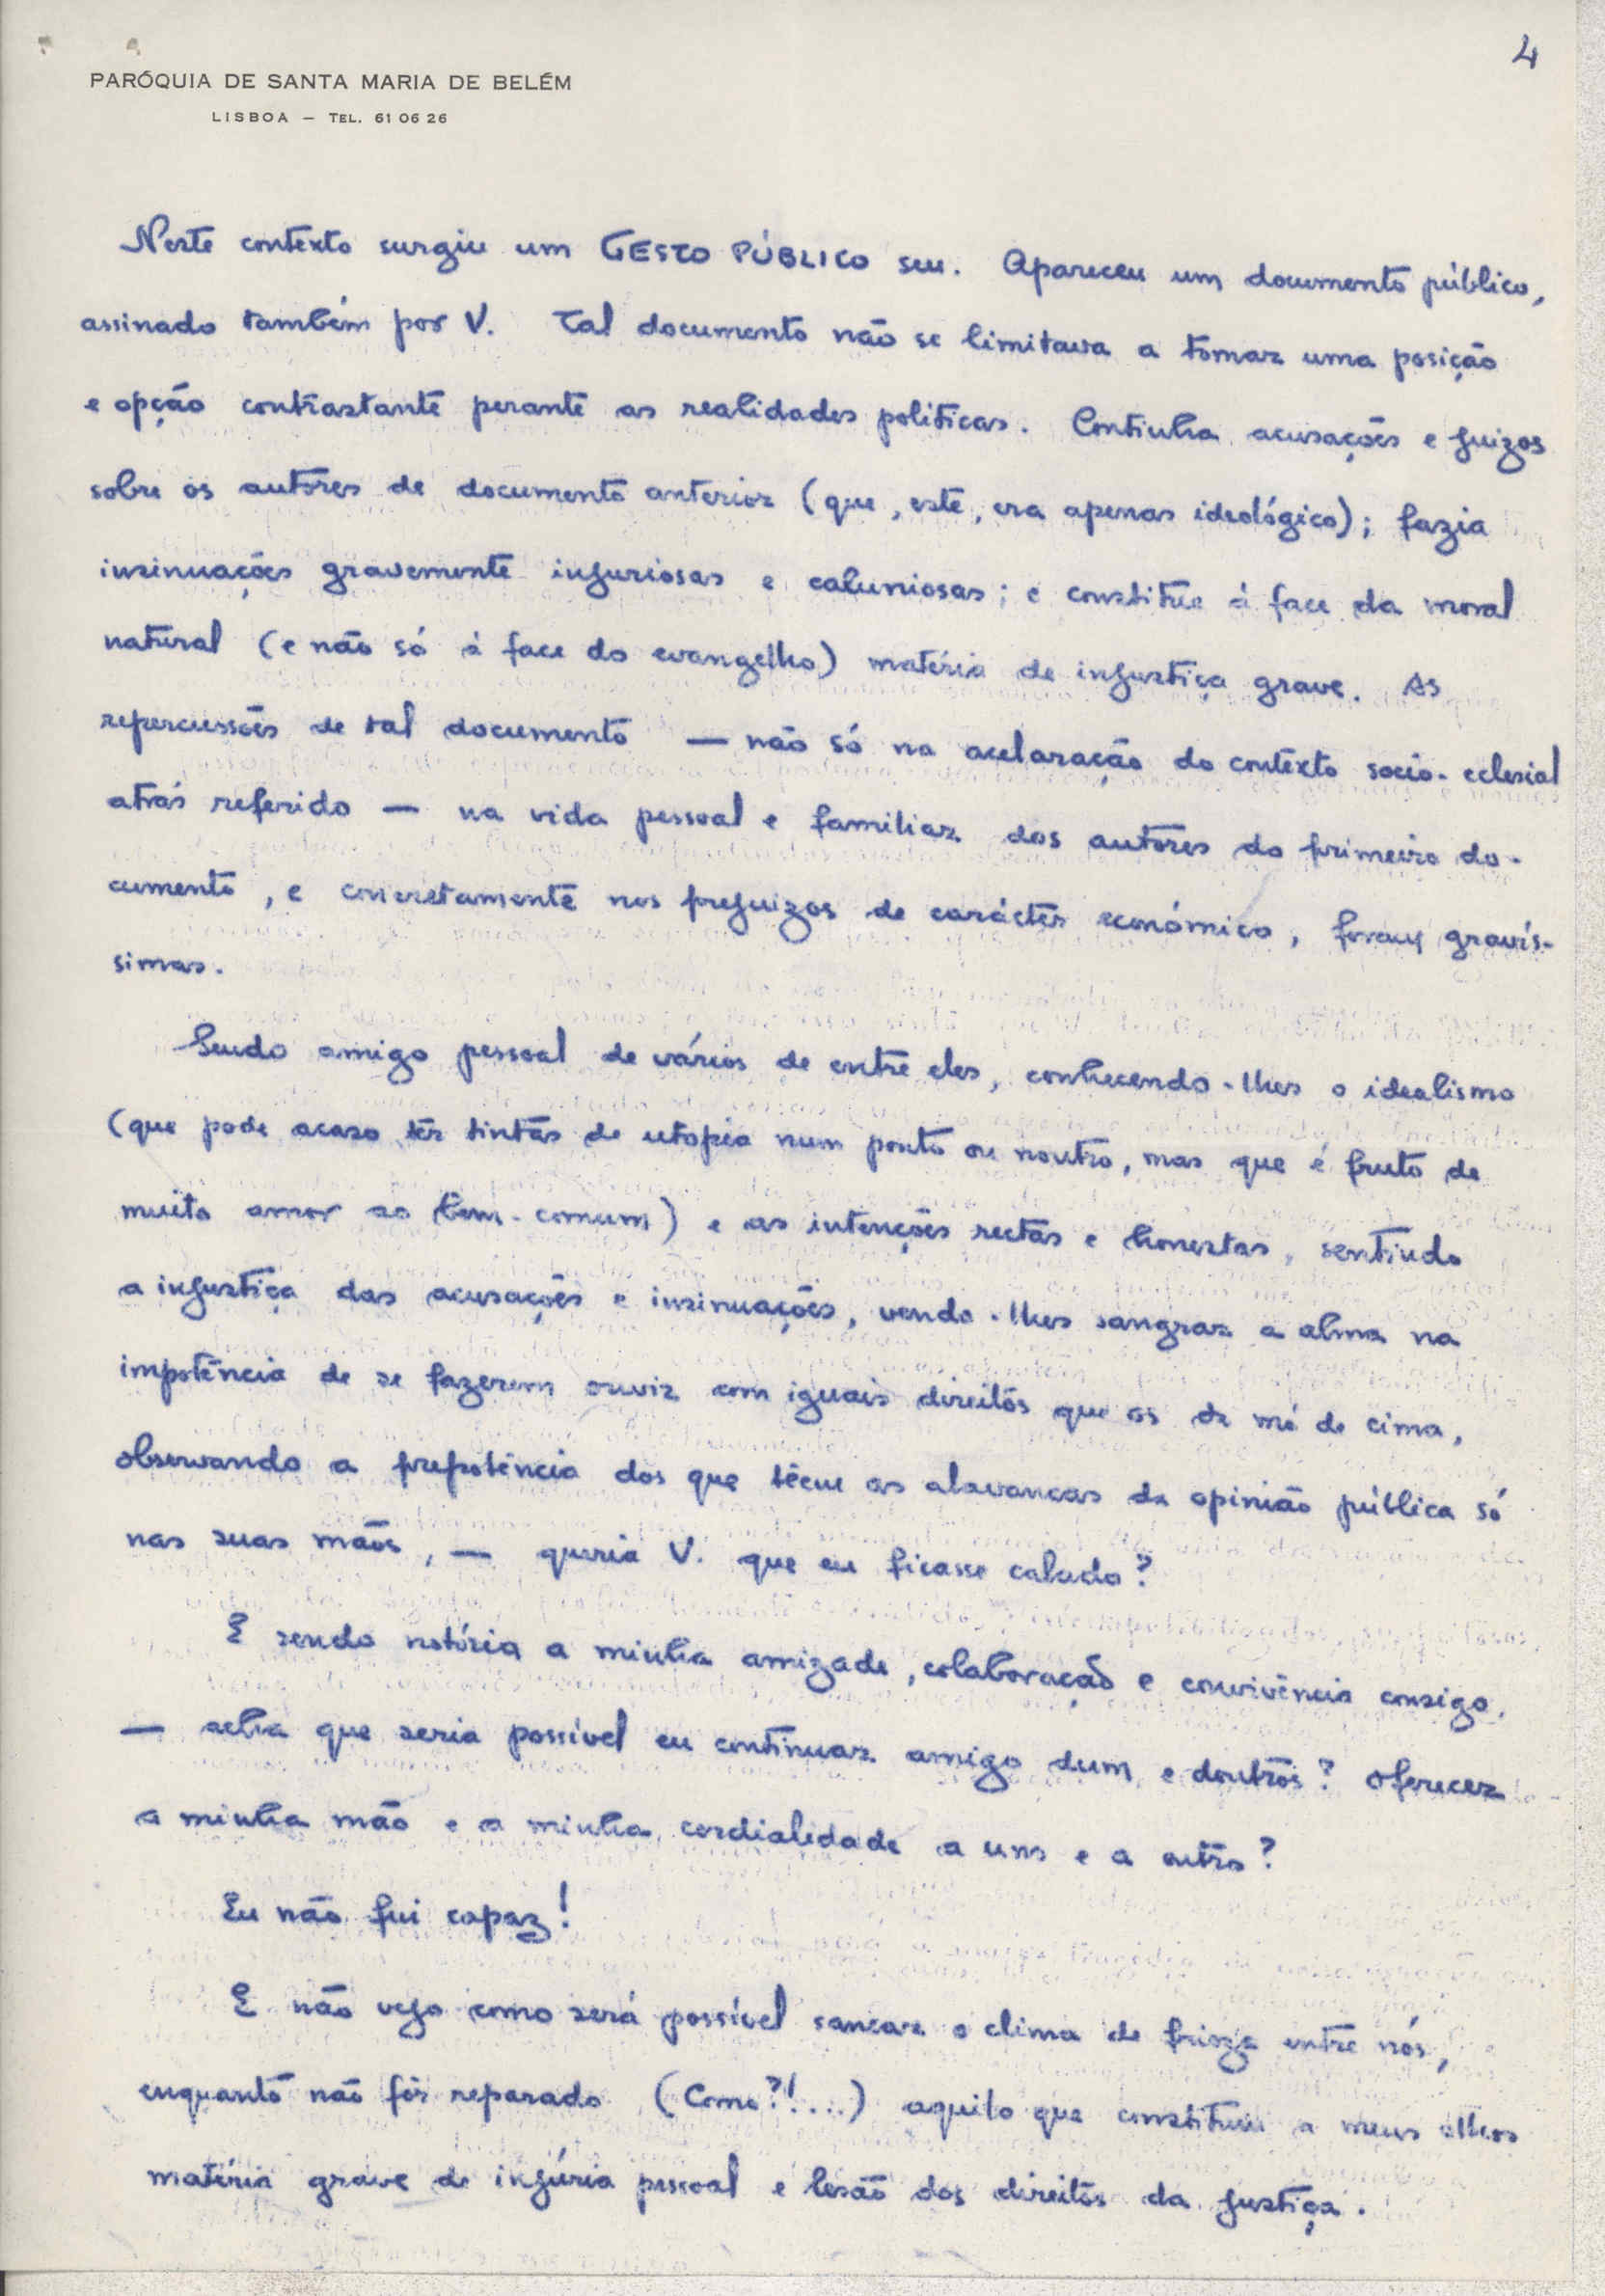 4
PARÓQUIA DE SANTA MARIA DE BELÉM
LISBOA — TEL. 61 06 26
Neste contexto surgiu um GESTO PÚBLICO seu. Apareceu um documento público,
assinado também por V. Tal documento não se limitava a tomar uma posição
e opção contrastante perante as realidades políticas. Continha acusações e juizos
sobre os autores de documento anterior (que, este, era apenas ideológico); fazia
insinuações gravemente injuriosas e caluniosas; e constitue à face da moral
natural (e não só à face do evangelho) matéria de injustiça grave. As
repercussões de tal documento — não só na aclaração do contexto socio-eclesial
atrás referido — na vida pessoal e familiar dos autores do primeiro do-
cumento, e concretamente nos prejuizos de carácter económico, foram gravís-
simas.
Sendo amigo pessoal de vários de entre eles, conhecendo-lhes o idealismo
(que pode acaso têr tintas de utopia num ponto ou noutro, mas que é fruto de
muito amor ao bem-comum) e as intenções rectas e honestas, sentindo
a injustiça das acusações e insinuações, vendo-lhes sangrar a alma na
impotência de se fazerem ouvir com iguais direitos que os da mó de cima,
observando a prepotência dos que têem as alavancas da opinião pública só
nas suas mãos, — queria V. que eu ficasse calado?
E sendo notória a minha amizade, colaboração e convivência consigo,
— acha que seria possível eu continuar amigo dum e doutros? Oferecer
a minha mão e a minha cordialidade a uns e a outro?
Eu não fui capaz!
E não vejo como será possível sanear o clima de frieza entre nós,
enquanto não fôr reparado (Como?!...) aquilo que constitui a meus olhos
matéria grave de injúria pessoal e lesão dos direitos da justiça.